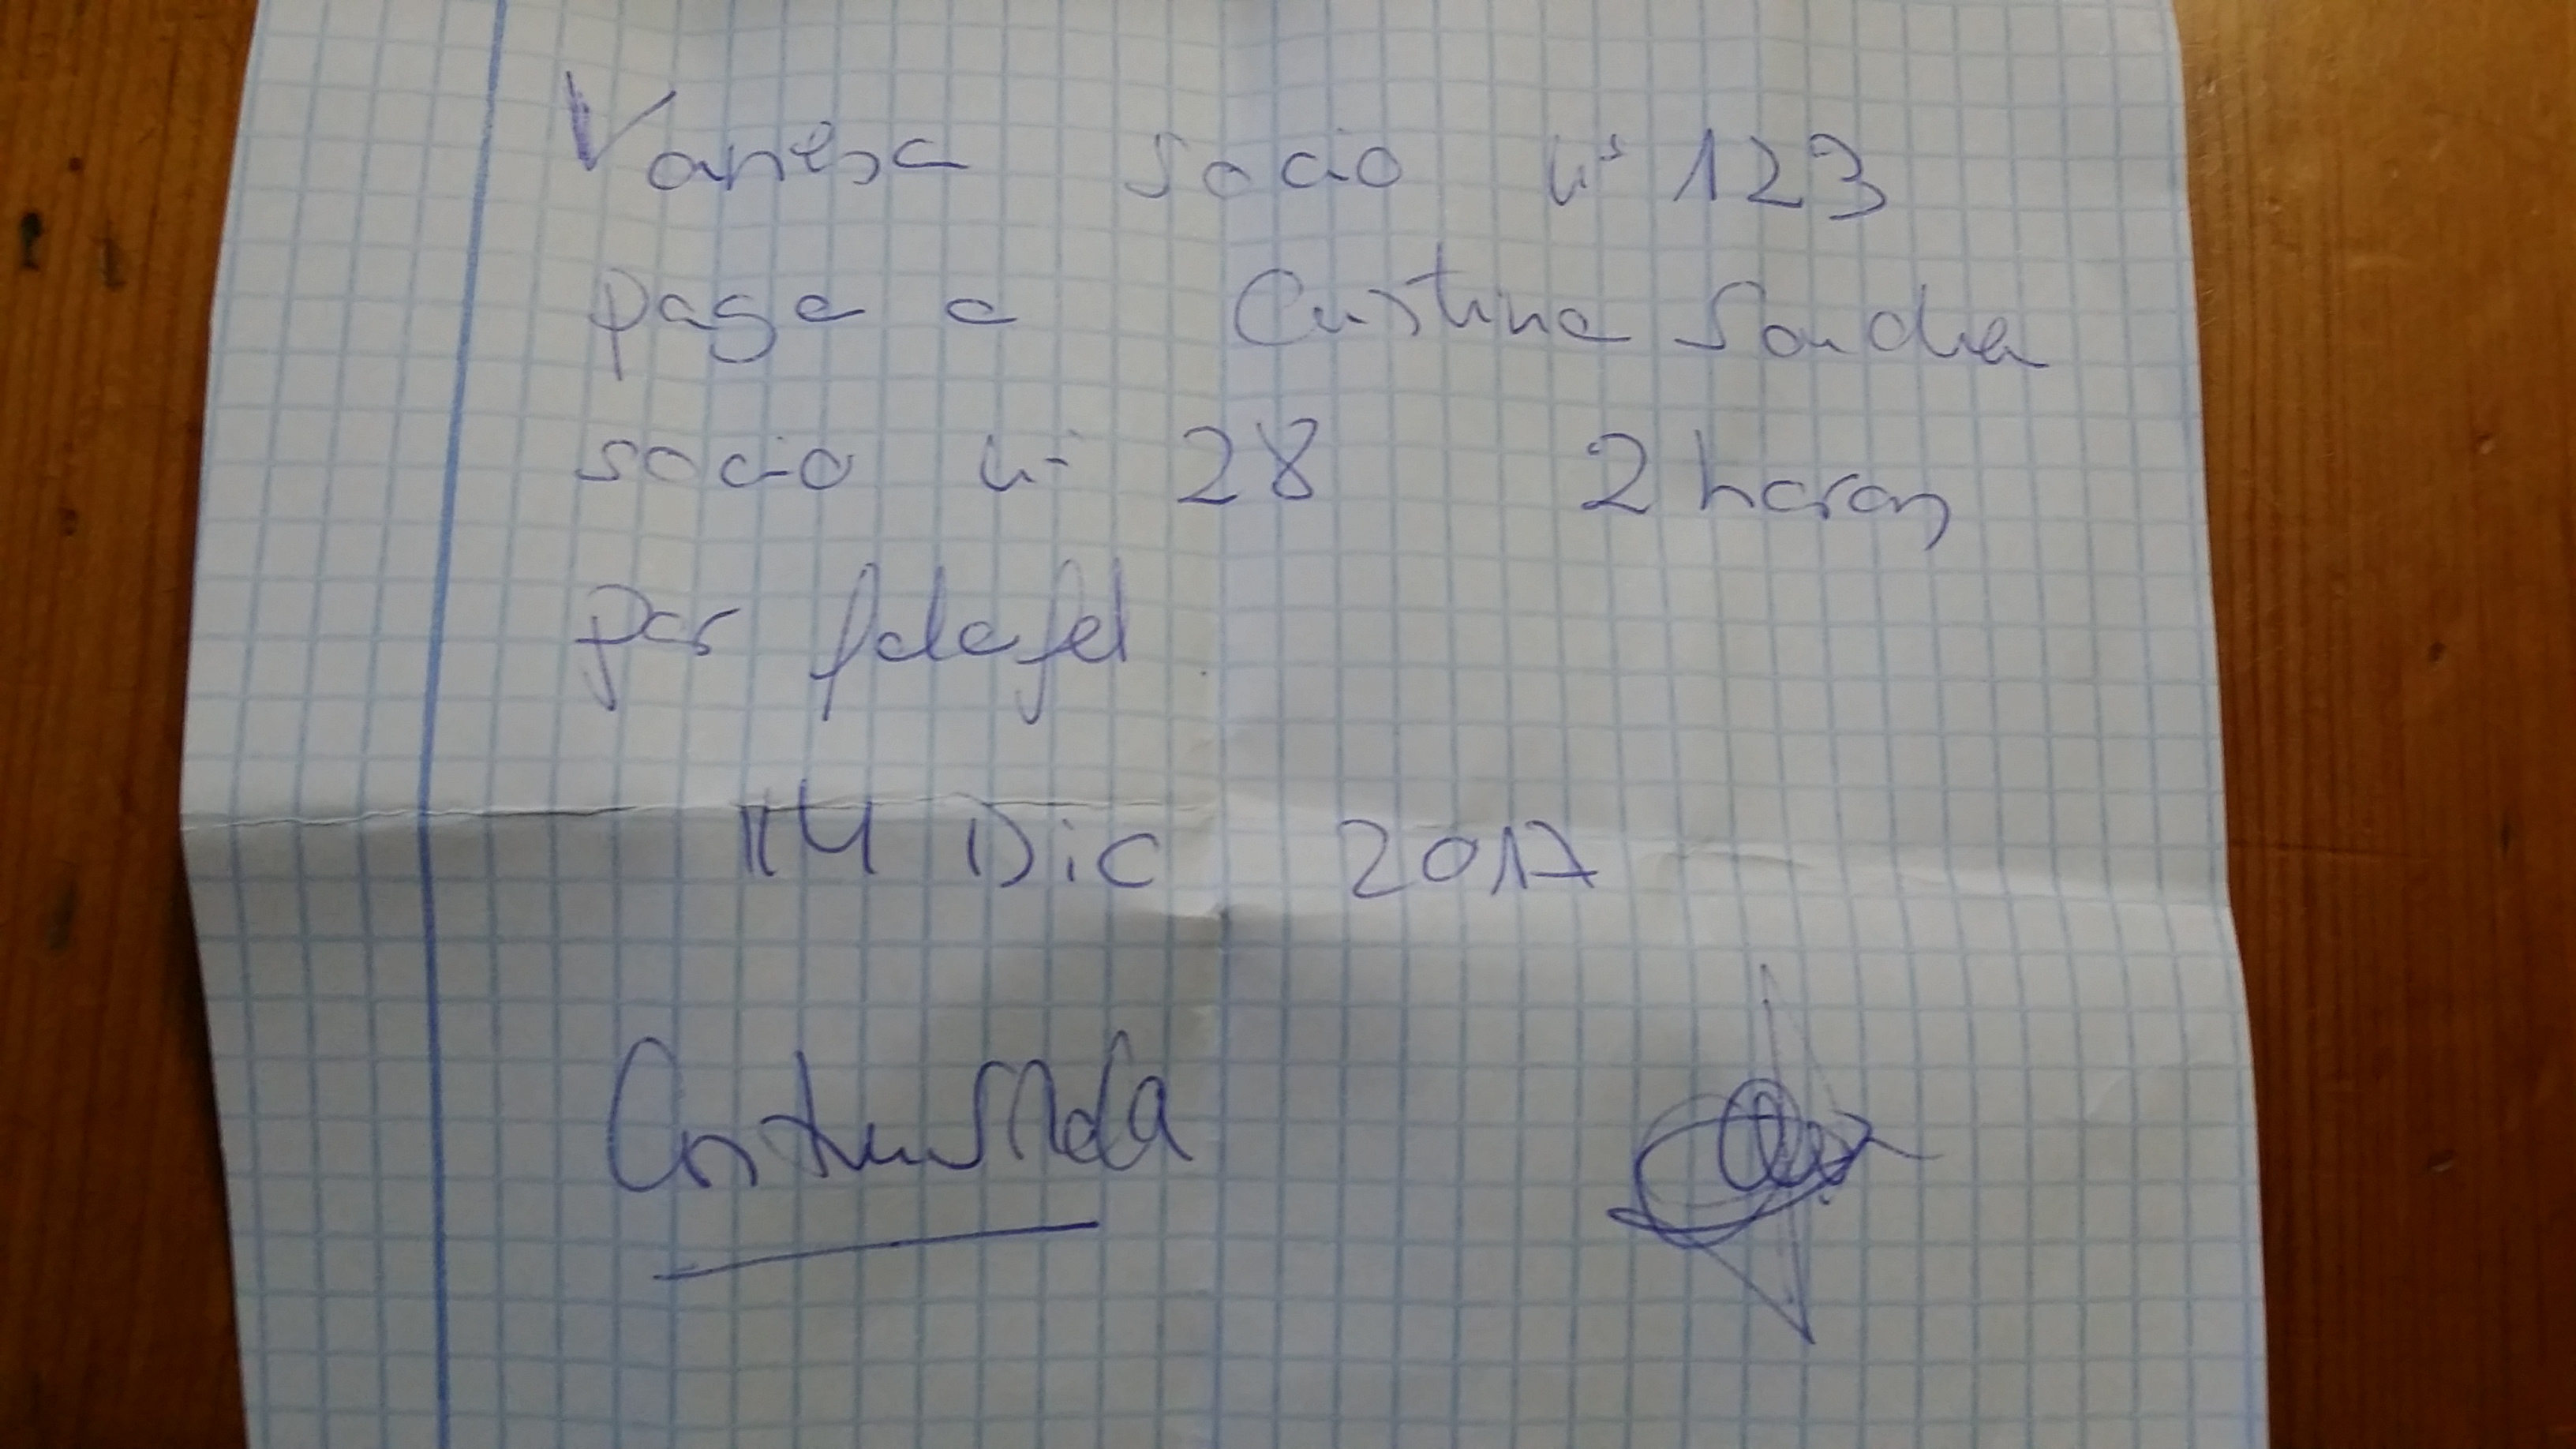 Vanesa socio nº 123
paga a Cristina Sancha
socio nº 28 2 horas
por falafel.
14 Dic 2017